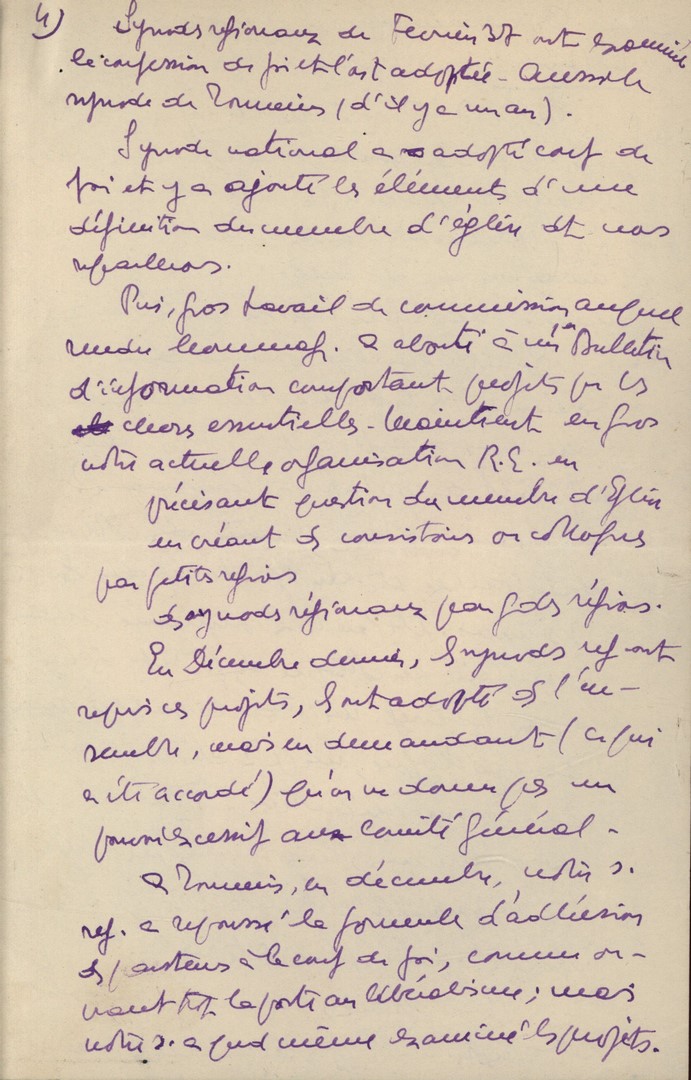 4) Synodes régionaux de Février 37 ont examiné
la confession de foi et l'ont adoptée - Aussi le
synode de Tonneins (d'il y a un an).
Synode national a adopté conf de
foi et y a ajouté les éléments d'une
définition du membre d'église dt nous
reparlerons.
Puis, gros travail de commission auquel
rendre hommage. A abouti à un 1er Bulletin
d'information comportant projets pr les
choses essentielles - Maintient en gros
notre actuelle organisation R.E. en
précisant question du membre d'Eglise
en créant ds consistoires ou colloques
par petites régions
ds synodes régionaux par gdes régions.
En Décembre dernier, ls synodes reg ont
repris ces projets, ls ont adoptés ds l'en-
semble, mais en demandant (ce qui
a été accordé) qu'on ne donne pas un
pouvoir excessif au Comité Général -
A Tonneins, en décembre, notre s.
reg. a repoussé la formule d'adhésion
ds pasteurs à la conf de foi, comme ou-
vrant trop la porte au libéralisme; mais
notre s. a qud même examiné ls projets.